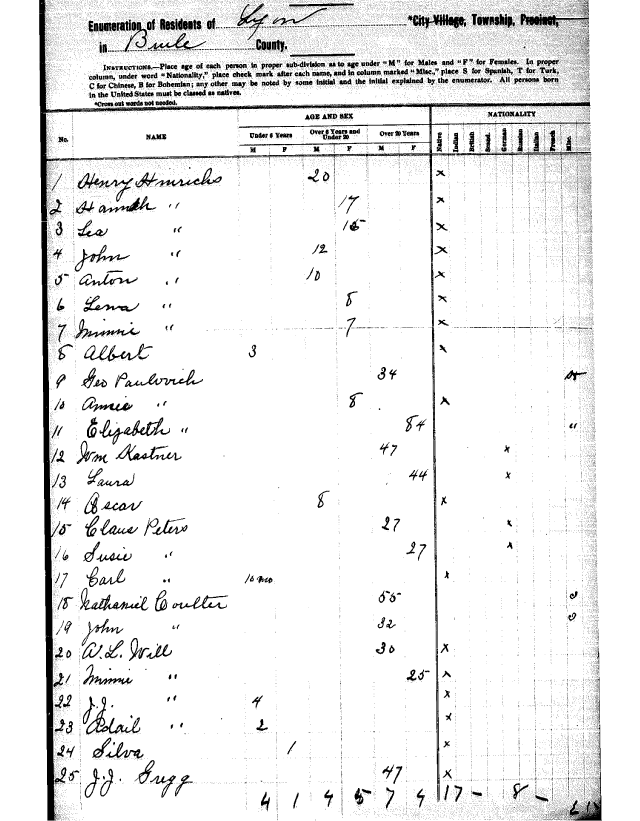 Enumeration of Residents of Lyon *City Village, Township, Precinct,
in Brule County.
INSTRUCTIONS.—Place age of each person in proper sub-division as to age under "M" for Males and "F" for Females. In proper
column, under word "Nationality," place check mark after each name, and in column marked "Misc.," place S for Spanish, T for Turk,
C for Chinese, B for Bohemian; any other may be noted by some initial and the initial explained by the enumerator. All persons born
in the United States must be classed as natives.
*Cross out words not needed.
AGE AND SEX NATIONALITY
No. NAME Under 6 Years Over 6 Years and Under 20 Over 20 Years Native Indian British Scand. German Russian Italian French Misc.
M F M F M F
1 Henry Hinrichs 20 x
2 Hannah " 17 x
3 Lea " 15 x
4 John " 12 x
5 Anton " 10 x
6 Lena " 8 x
7 Minnie " 7 x
8 Albert 3 x
9 Geo Paulovich 34
10 Annie " 8 x
11 Elizabeth " 84 "
12 Wm Kastner 47 x
13 Laura 44 x
14 Oscar 8 x
15 Claus Peters 27 x
16 Susie " 27 x
17 Carl " 10 mo x
18 Nathaniel Coulter 55
19 John " 32
20 A.L. Will 30 x
21 Minnie " 25 x
22 J.J. " 4 x
23 Adail " 2 x
24 Silva 1 x
25 J.J. Gregg 47 x
4 1 4 5 7 4 17 - 8 -